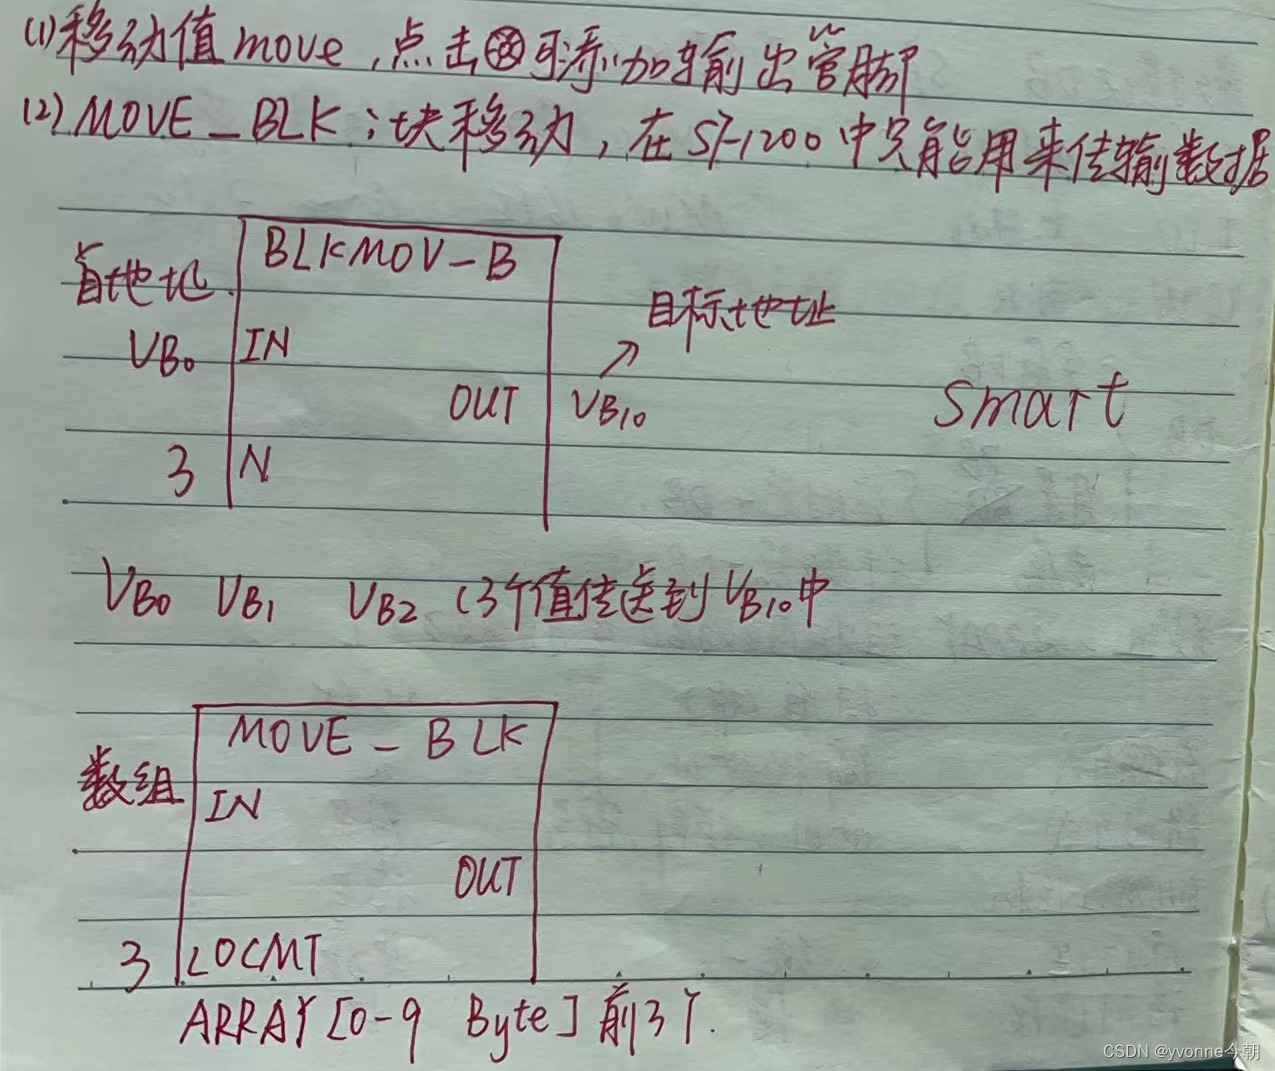 (1)移动值move,点击可添加输出管脚
(2)MOVE_BLK:块移动,在S7-1200中只能用来传输数据
BLKMOV-B
首地址
目标地址
VB0 IN
OUT VB10
Smart
3 N
VB0 VB1 VB2 (3个值传送到VB10中
MOVE-BLK
数组 IN
OUT
3 LOCMT
ARRAY[0-9 Byte]前3个.
CSDN @yvonne今朝